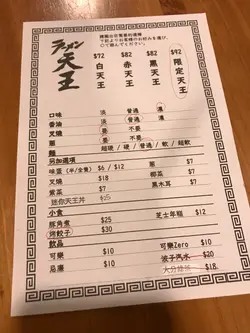 ラーメン
天王
請圈出您需要的選擇
下記よりお客様のお好みを選び、
○で囲んでください
$72 白天王
$82 赤天王
$82 黑天王
$92 限定天王
口味 淡 普通 濃
香油 淡 普通 濃
叉燒 要 不要
蔥 要 不要
麵 超硬 / 硬 / 普通 / 軟 / 超軟
另加選項
味蛋 (半/全隻) $6 / $12
叉燒 $18
紫菜 $5
蔥 $7
椰菜 $5
黑木耳 $7
迷你天王丼 $25
小食
豚角煮 $25
餃子 $30
芝士年糕 $12
飲品
可樂 $10
忌廉 $10
可樂Zero $10
波子汽水 $20
大分綠茶 $18